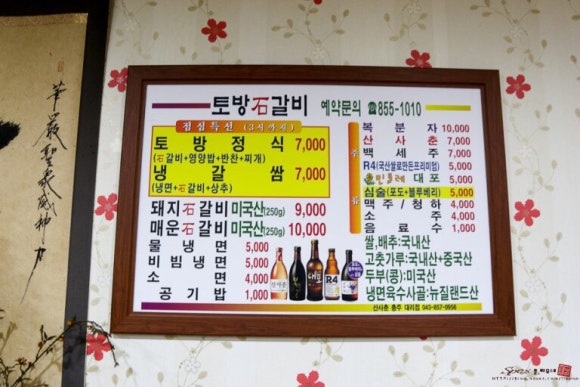 華嚴聖衆威神力
토방石갈비 예약문의 ☎855-1010
점심특선 (3시까지)
토방정식 7,000
(石갈비+영양밥+반찬+찌개)
냉갈쌈 7,000
(냉면+石갈비+상추)
돼지石갈비 미국산(250g) 9,000
매운石갈비 미국산(250g) 10,000
물냉면 5,000
비빔냉면 5,000
소면 4,000
공기밥 1,000
주류
복분자 10,000
산사춘 7,000
백세주 7,000
R4(국산쌀로만든프리미엄) 5,000
대포 5,000
심술(포도+블루베리) 5,000
맥주/청하 4,000
소주 4,000
음료수 1,000
쌀,배추:국내산
고춧가루:국내산+중국산
두부(콩):미국산
냉면육수사골:뉴질랜드산
R4
산사춘 충주 대리점 043-857-0956